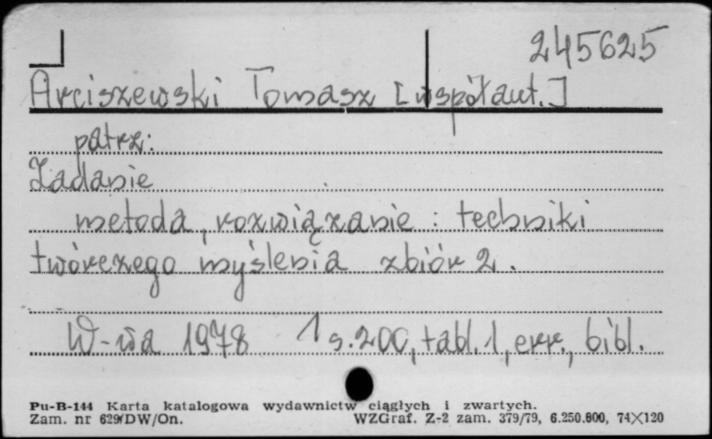 245625
Arciszewski Tomasz [współaut.]
patrz:
Zadanie
metoda, rozwiązanie : techniki
twórczego myślenia zbiór 2.
W-wa 1978 1 s. 200, tabl. 1, err., bibl.
Pu-B-144 Karta katalogowa wydawnictw ciągłych i zwartych.
Zam. nr 629/DW/On. WZGraf. Z-2 zam. 379/79, 6.250.800, 74×120